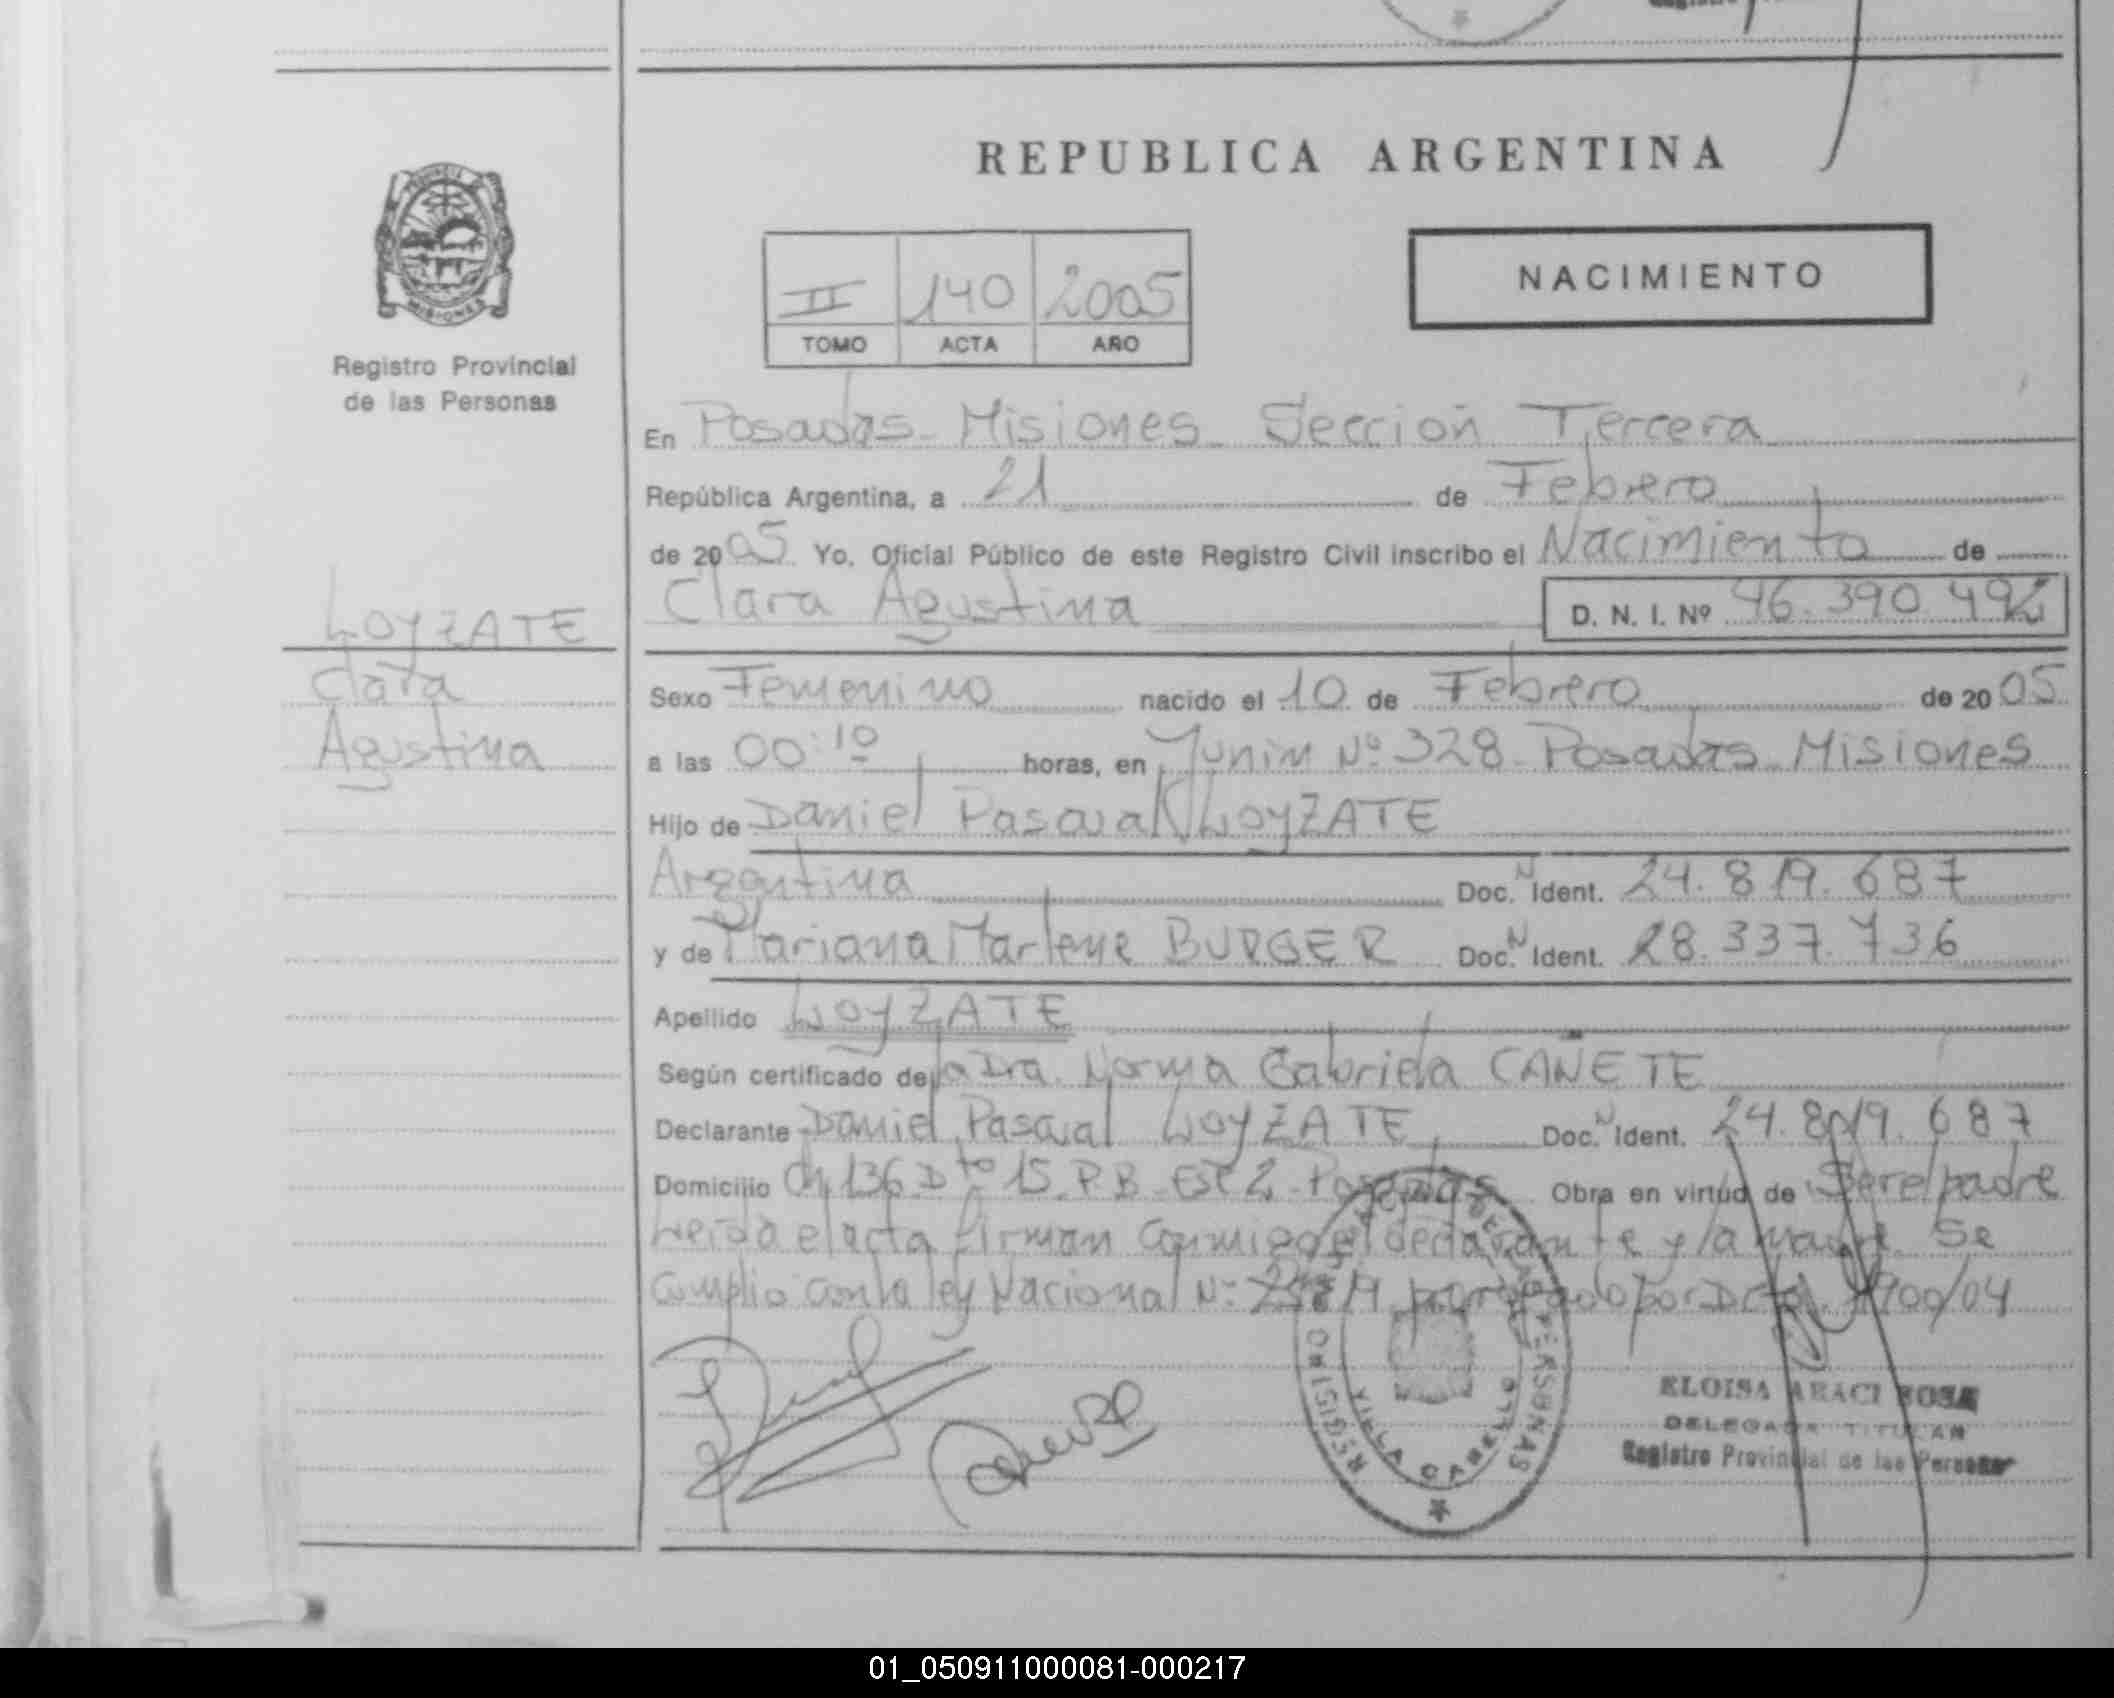 REPUBLICA ARGENTINA
PROVINCIA DE
MISIONES
Registro Provincial
de las Personas
II 140 2005
TOMO ACTA AÑO
NACIMIENTO
En Posadas Misiones Sección Tercera
República Argentina, a 21 de Febrero
de 2005 Yo, Oficial Público de este Registro Civil inscribo el Nacimiento de
Clara Agustina D. N. I. Nº 46.390.492
LOYZATE
Clara
Agustina
Sexo Femenino nacido el 10 de Febrero de 2005
a las 00:10 horas, en Junin Nº 328 Posadas Misiones
Hijo de Daniel Pascual LOYZATE
Argentina Doc. N Ident. 24.819.687
y de Mariana Marlene BURGER Doc. N Ident. 28.337.736
Apellido LOYZATE
Según certificado de la Dra. Norma Gabriela CAÑETE
Declarante Daniel Pascual LOYZATE Doc. N Ident. 24.819.687
Domicilio Ch. 136 Dto 15 P.B. Esc 2 Posadas Obra en virtud de Ser el padre
Leida el acta firman conmigo el declarante y la madre Se
Cumplio con la ley Nacional Nº por Dcto. 1900/04
REGISTRO DE LAS PERSONAS
VILLA CABELLO
ELOISA ARACI SOSA
DELEGADA TITULAR
Registro Provincial de las Personas
01_050911000081-000217